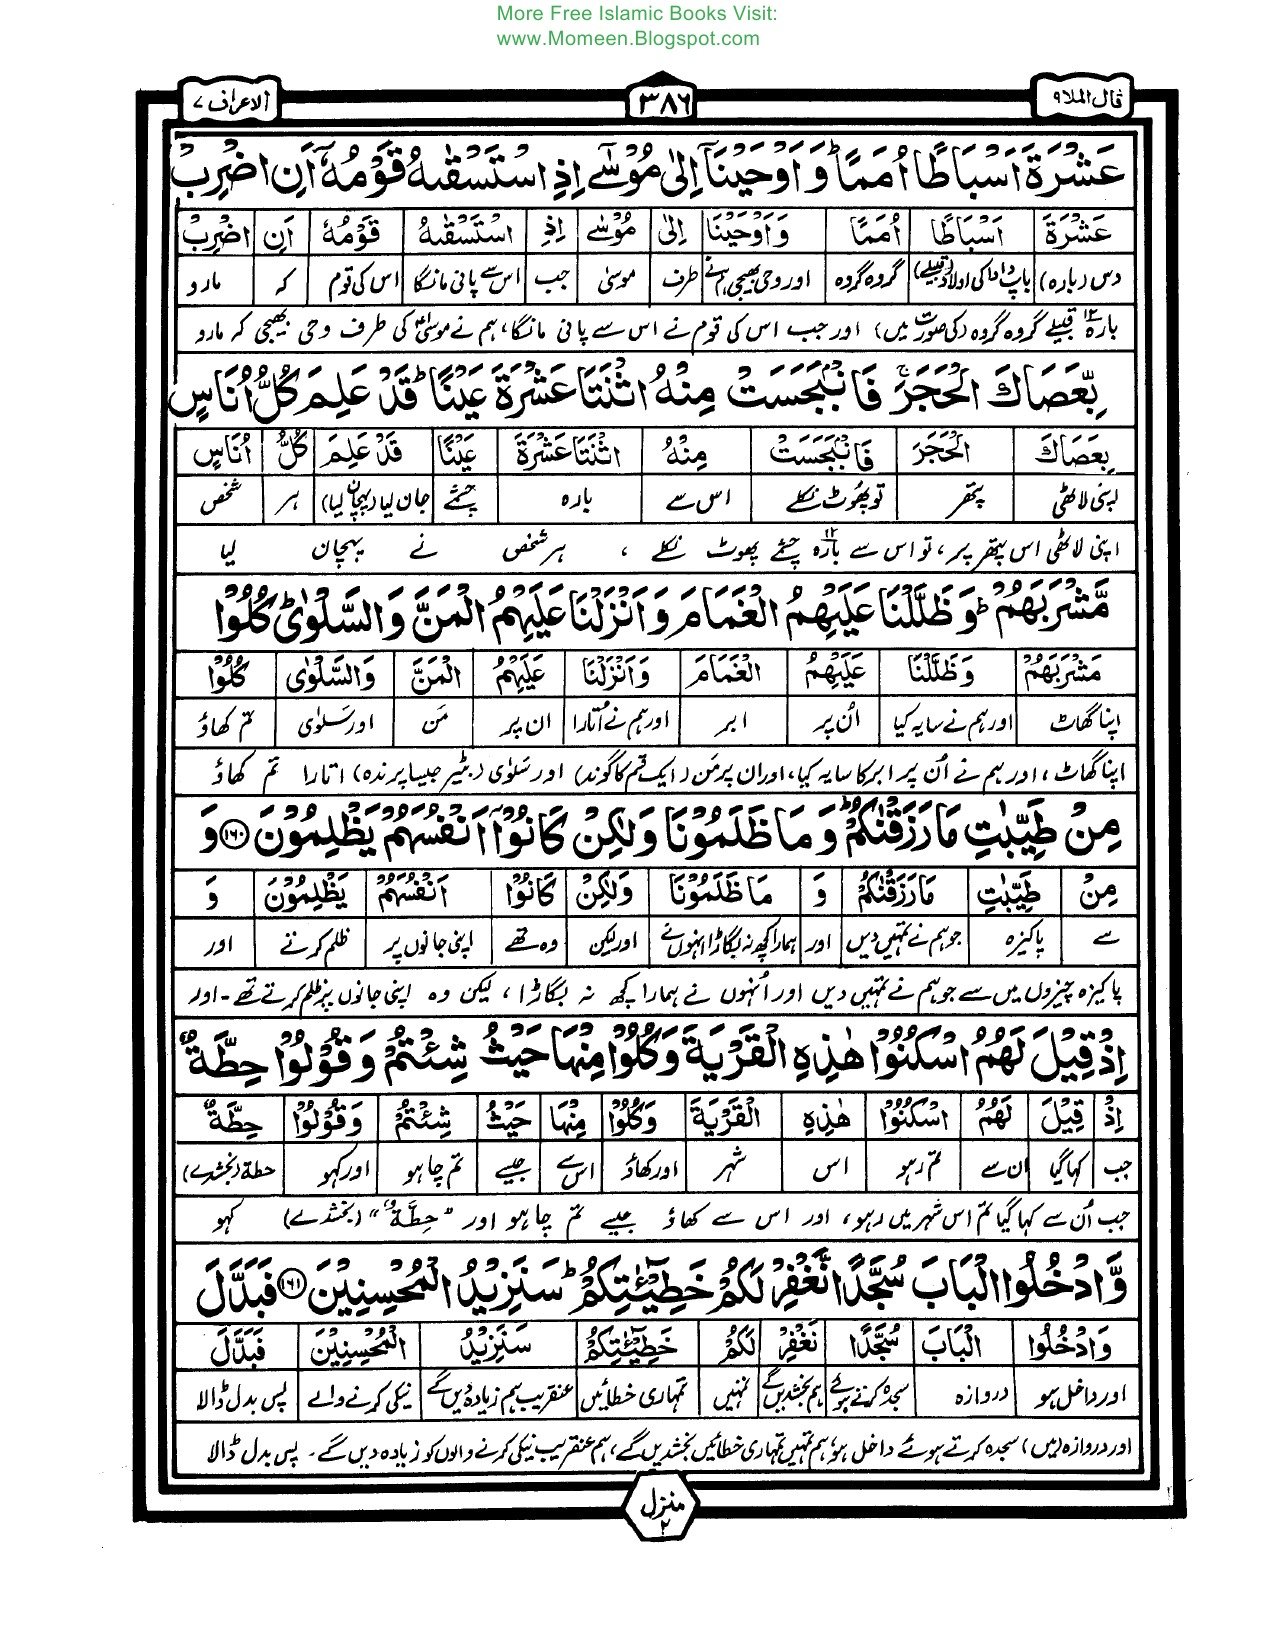 More Free Islamic Books Visit:
www.Momeen.Blogspot.com
قال الملا ۹
۳۸۶
الاعراف ۷
عَشْرَةَ اَسْبَاطًا اُمَمًا ؕ وَ اَوْحَيْنَاۤ اِلٰى مُوْسٰۤى اِذِ اسْتَسْقٰىهُ قَوْمُهٗۤ اَنِ اضْرِبْ
عَشْرَةَ اَسْبَاطًا اُمَمًا وَاَوْحَيْنَا اِلٰى مُوْسٰۤى اِذِ اسْتَسْقٰىهُ قَوْمُهٗ اَنِ اضْرِبْ
دس (بارہ) باپ دادا کی اولاد (قبیلے) گروہ گروہ اور وحی بھیجی ہم نے طرف موسیٰ جب اس سے پانی مانگا اس کی قوم کہ مارو
بارہ ۱۲ قبیلے گروہ گروہ (کی صورت میں) اور جب اس کی قوم نے اس سے پانی مانگا، ہم نے موسیٰؑ کی طرف وحی بھیجی کہ مارو
بِّعَصَاكَ الْحَجَرَ ۚ فَانْۢبَجَسَتْ مِنْهُ اثْنَتَا عَشْرَةَ عَيْنًا ؕ قَدْ عَلِمَ كُلُّ اُنَاسٍ
بِعَصَاكَ الْحَجَرَ فَانْۢبَجَسَتْ مِنْهُ اثْنَتَا عَشْرَةَ عَيْنًا قَدْ عَلِمَ كُلُّ اُنَاسٍ
اپنی لاٹھی پتھر تو پھوٹ نکلے اس سے بارہ چشمے جان لیا (پہچان لیا) ہر شخص
اپنی لاٹھی اس پتھر پر، تو اس سے بارہ ۱۲ چشمے پھوٹ نکلے ، ہر شخص نے پہچان لیا
مَّشْرَبَهُمْ ؕ وَ ظَلَّلْنَا عَلَيْهِمُ الْغَمَامَ وَ اَنْزَلْنَا عَلَيْهِمُ الْمَنَّ وَ السَّلْوٰى ؕ كُلُوْا
مَشْرَبَهُمْ وَ ظَلَّلْنَا عَلَيْهِمُ الْغَمَامَ وَ اَنْزَلْنَا عَلَيْهِمُ الْمَنَّ وَالسَّلْوٰى كُلُوْا
اپنا گھاٹ اور ہم نے سایہ کیا اُن پر ابر اور ہم نے اُتارا ان پر مَن اور سَلوٰی تم کھاؤ
اپنا گھاٹ ، اور ہم نے اُن پر ابر کا سایہ کیا، اور ان پر مَن (ایک قسم کا گوند) اور سَلوٰی (بٹیر جیسا پرندہ) اتارا تم کھاؤ
مِنْ طَيِّبٰتِ مَا رَزَقْنٰكُمْ ؕ وَ مَا ظَلَمُوْنَا وَلٰكِنْ كَانُوْۤا اَنْفُسَهُمْ يَظْلِمُوْنَ ۝۱۶۰ وَ
مِنْ طَيِّبٰتِ مَا رَزَقْنٰكُمْ وَ مَا ظَلَمُوْنَا وَلٰكِنْ كَانُوْا اَنْفُسَهُمْ يَظْلِمُوْنَ وَ
سے پاکیزہ جو ہم نے تمہیں دیں اور ہمارا کچھ نہ بگاڑا انہوں نے اور لیکن وہ تھے اپنی جانوں پر ظلم کرتے اور
پاکیزہ چیزوں میں سے جو ہم نے تمہیں دیں اور اُنہوں نے ہمارا کچھ نہ بگاڑا ، لیکن وہ اپنی جانوں پر ظلم کرتے تھے۔ اور
اِذْ قِيْلَ لَهُمُ اسْكُنُوْا هٰذِهِ الْقَرْيَةَ وَ كُلُوْا مِنْهَا حَيْثُ شِئْتُمْ وَ قُوْلُوْا حِطَّةٌ
اِذْ قِيْلَ لَهُمُ اسْكُنُوْا هٰذِهِ الْقَرْيَةَ وَكُلُوْا مِنْهَا حَيْثُ شِئْتُمْ وَقُوْلُوْا حِطَّةٌ
جب کہا گیا ان سے تم رہو اس شہر اور کھاؤ اس سے جیسے تم چاہو اور کہو حطۃ (بخشدے)
جب اُن سے کہا گیا تم اس شہر میں رہو، اور اس سے کھاؤ جیسے تم چاہو اور "حِطَّةٌ" (بخشدے) کہو
وَّ ادْخُلُوا الْبَابَ سُجَّدًا نَّغْفِرْ لَكُمْ خَطِيْٓـٰٔتِكُمْ ؕ سَنَزِيْدُ الْمُحْسِنِيْنَ ۝۱۶۱ فَبَدَّلَ
وَ ادْخُلُوا الْبَابَ سُجَّدًا نَغْفِرْ لَكُمْ خَطِيْٓـٰٔتِكُمْ سَنَزِيْدُ الْمُحْسِنِيْنَ فَبَدَّلَ
اور داخل ہو دروازہ سجدہ کرتے ہوئے ہم بخشدیں گے تمہیں تمہاری خطائیں عنقریب ہم زیادہ دیں گے نیکی کرنے والے پس بدل ڈالا
اور دروازہ (میں) سجدہ کرتے ہوئے داخل ہو، ہم تمہیں تمہاری خطائیں بخشدیں گے، ہم عنقریب نیکی کرنے والوں کو زیادہ دیں گے۔ پس بدل ڈالا
منزل ۲